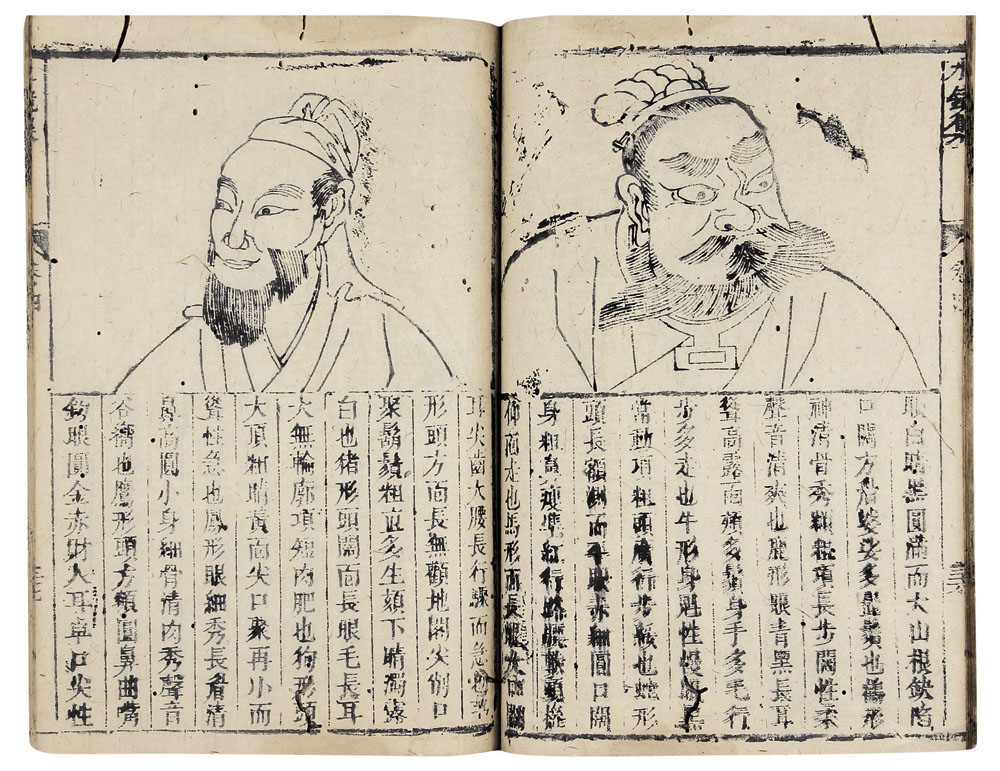 水鏡集
眼白睛黑圓滿而大山根缺陷
口闊方多髭鬚也形
神清骨秀粗項長步闊性柔
聲音清爽也鹿形眼青黑長耳
聳高露面多鬍身手多毛行
步多走也牛形身性慢
常動項粗頭廣行步緩也蛇形
頭長額而平眼赤細圓口闊
身粗紅行路腰軟頭
仰而走也馬形面長眼大口闊
耳尖齒大腰長行驟而急也羊
形頭方面長無顴地閣尖削口
聚鬍鬚粗直多生頦下睛濁露
白也猪形頭闊面長眼毛長耳
大無輪廓項短肉肥也狗形頭
大項粗睛黃面尖口聚再小而
聳性急也鳳形眼細秀長眉清
鼻高圓小身細骨清肉秀聲音
谷響也鷹形頭方額圓鼻曲嘴
鈎眼圓金赤財人耳卓口尖性